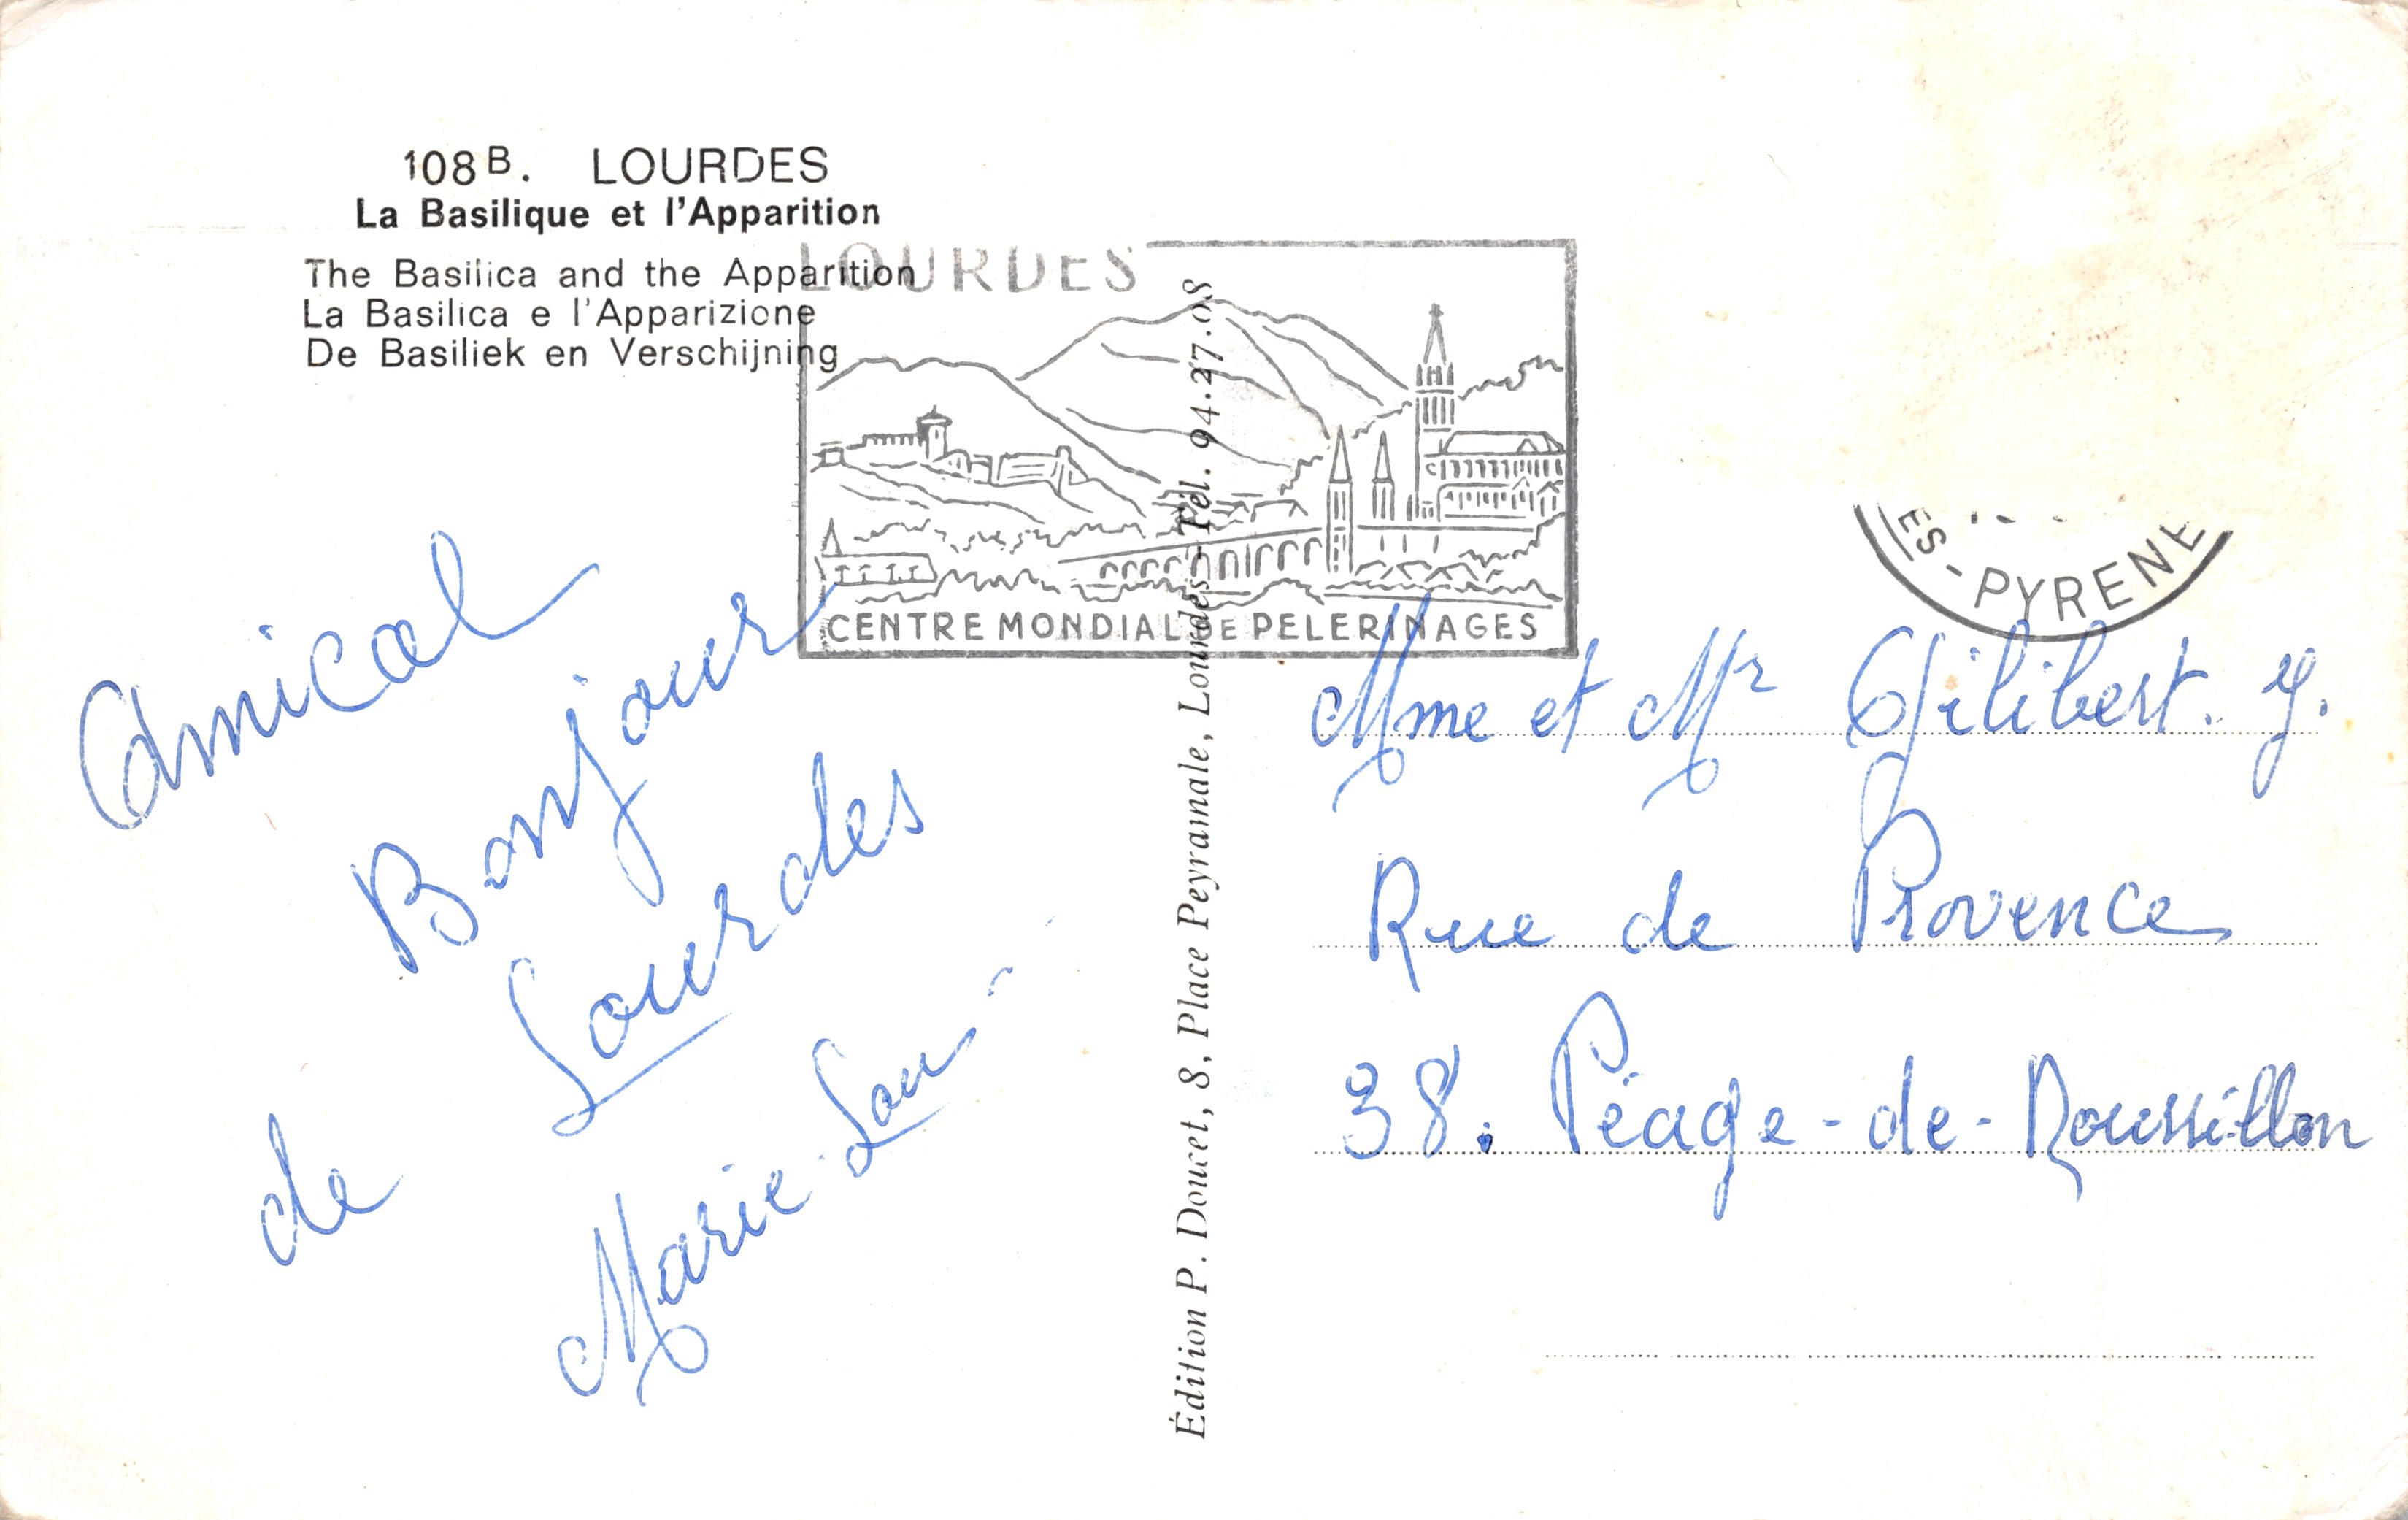 108 B. LOURDES
La Basilique et l'Apparition
The Basilica and the Apparition
La Basilica e l'Apparizione
De Basiliek en Verschijning
LOURDES
CENTRE MONDIAL DE PELERINAGES
ES-PYRENE
Amical
Bonjour
de Lourdes
Marie-Lou
Édition P. Doucet, 8, Place Peyramale, Lourdes - Tél. 94.27.08
Mme et Mr Gilibert. y.
Rue de Provence
38. Péage-de-Roussillon